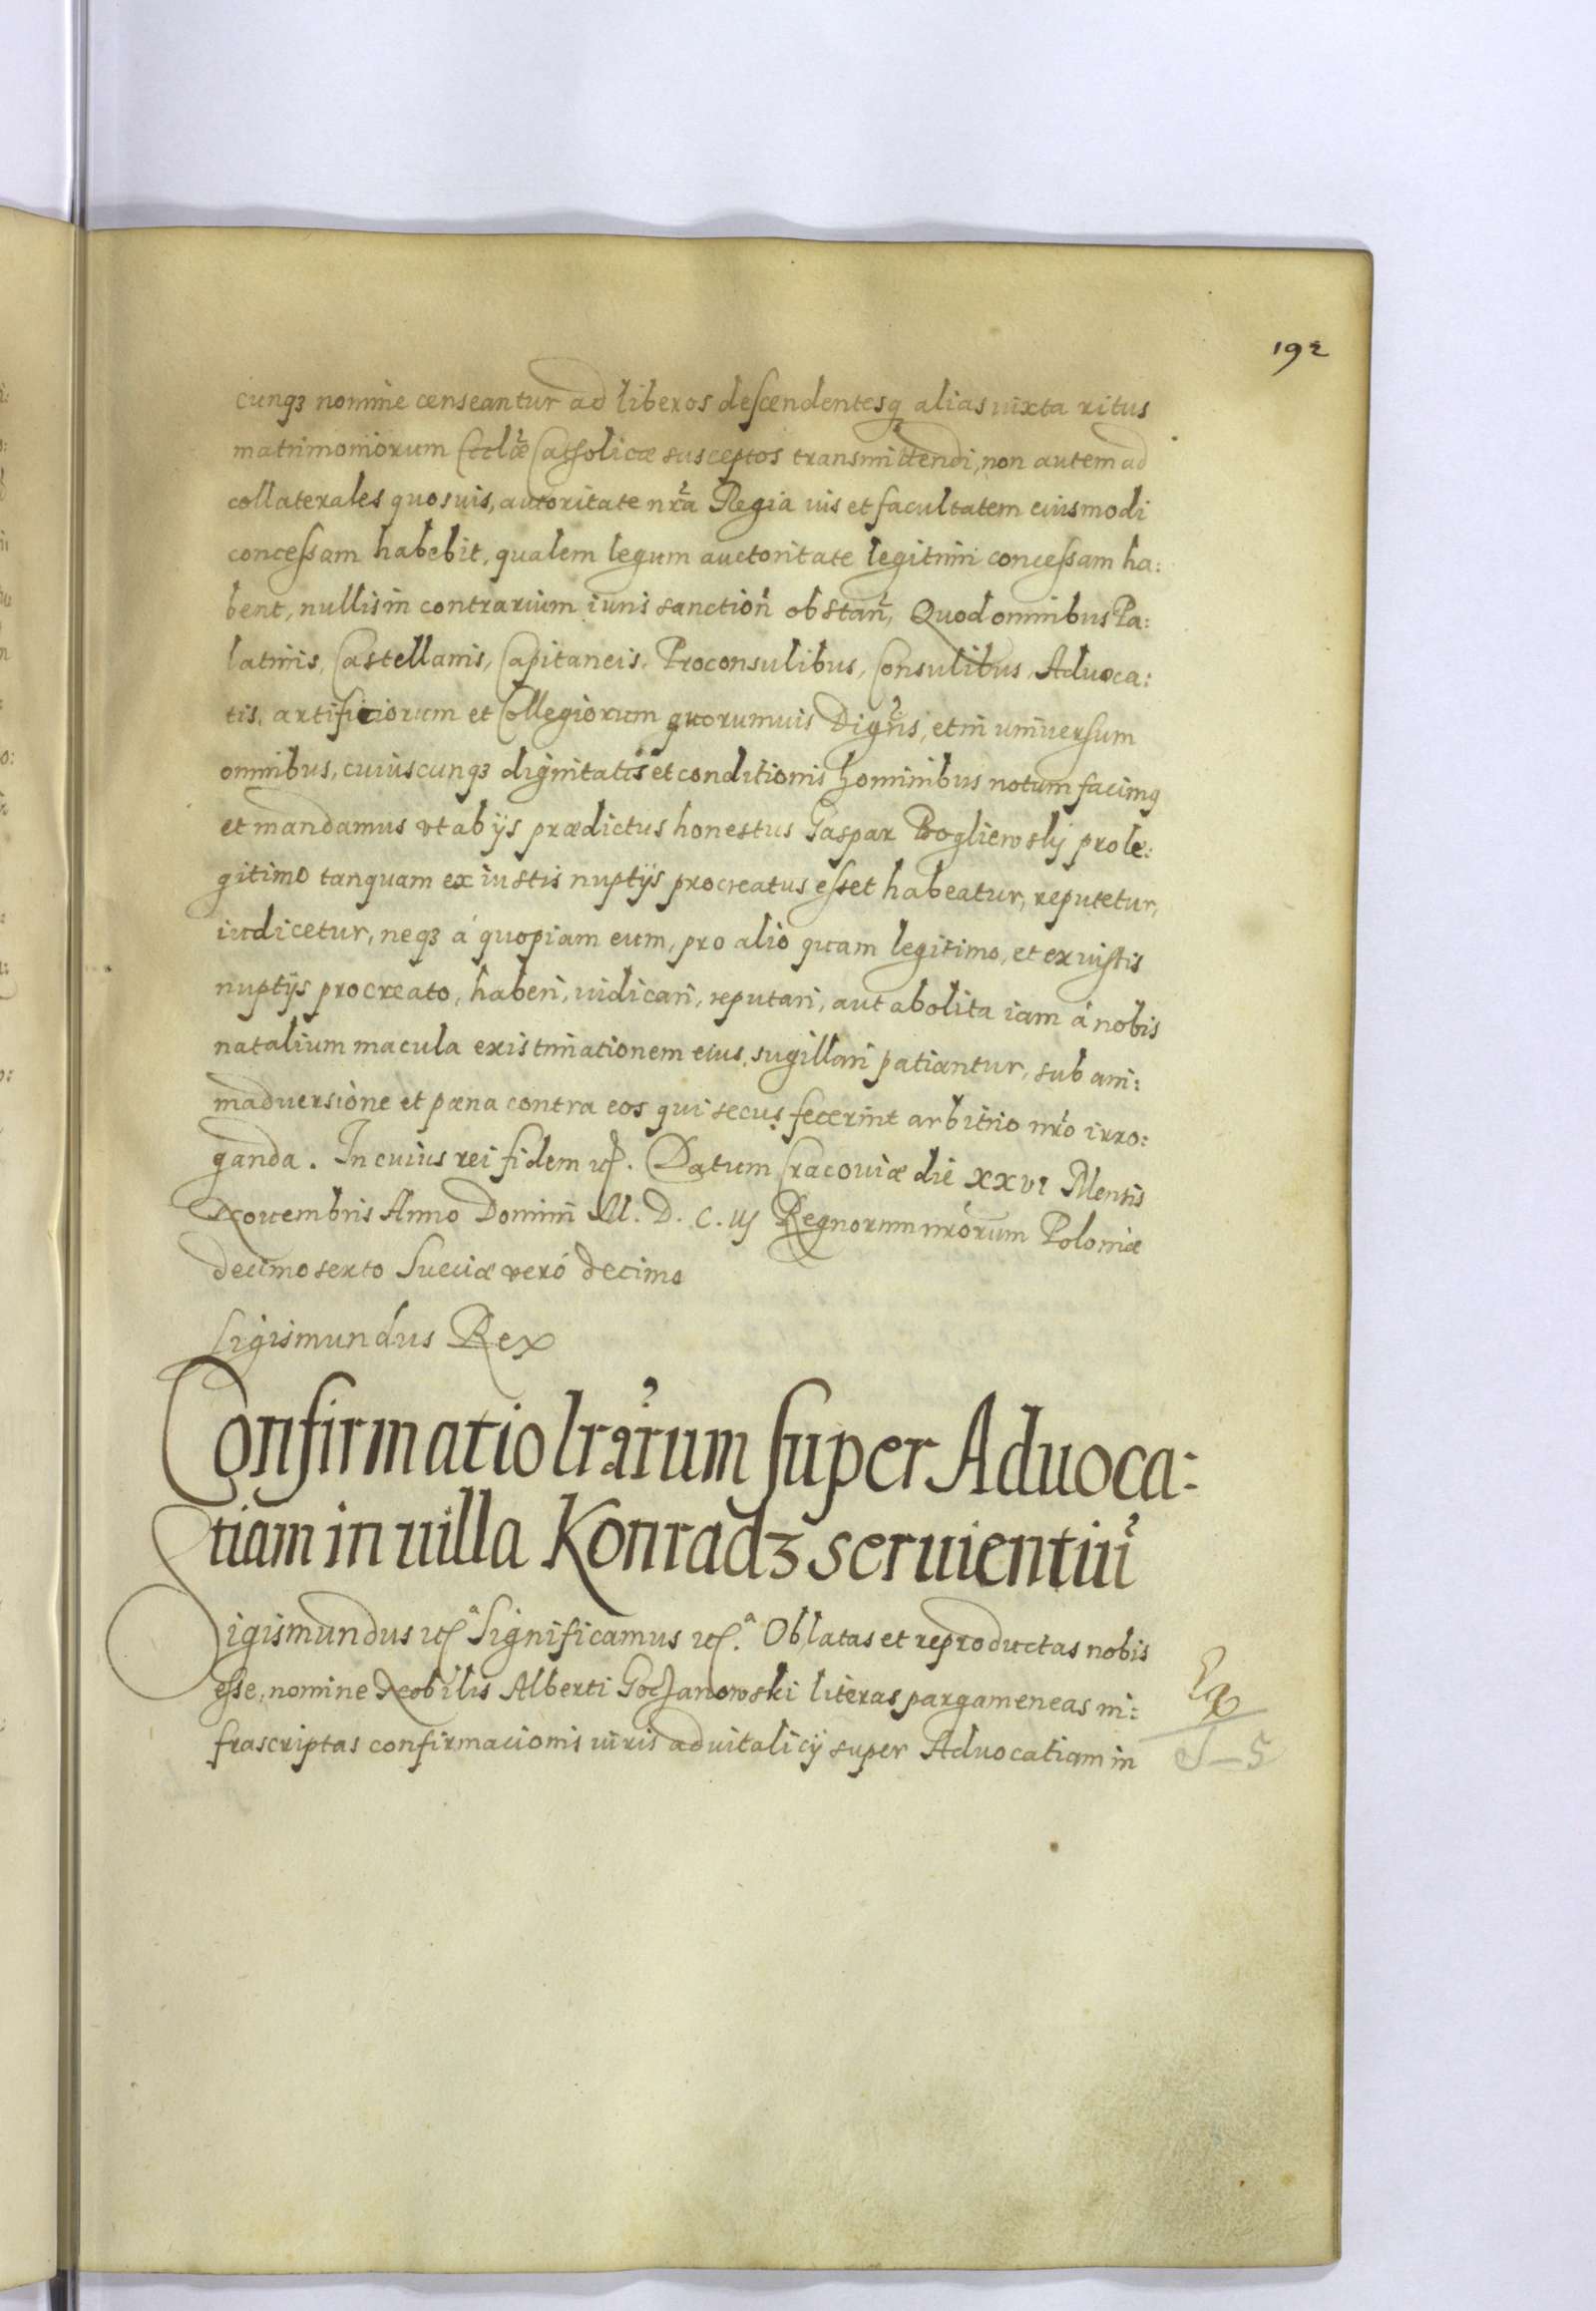 192
cunqꝫ nomine censeantur ad liberos descendentesq alias iuxta ritus
matrimoniorum Eccl̃æ Catholicæ susceptos transmittendi, non autem ad
collaterales quosuis, autoritate nr̃a Regia ius et facultatem eiusmodi
concessam habebit, qualem legum auctoritate legitimi concessam ha:
bent, nullis in contrarium iuris sanctioñ obstañ, Quod omnibus Pa:
latinis, Castellanis, Capitaneis, Proconsulibus, Consulibus, Aduoca:
tis, artificiorum et Collegiorum quorumuis Digñis, et in uniuersum
omnibus, cuiuscunqꝫ dignitatis et conditionis hominibus notum facimꝯ
et mandamus vt ab ijs prædictus honestus Gaspar Bogliewslÿ pro le:
gitimo tanquam ex iustis nuptijs procreatus esset habeatur, reputetur,
iudicetur, neqꝫ á quopiam eum, pro alio quam legitimo, et ex iustis
nuptijs procreato, haberi, iudicari, reputari, aut abolita iam á nobis
natalium macula existimationem eius, sugillari patiantur, sub ani:
maduersione et pæna contra eos qui secus fecerint arbitrio nr̃o irro:
ganda. In cuius rei fidem ꝛc̃. Datum Cracouiæ die XXVI Mensis
Nouembris Anno Domini M. D. C. iij Regnorum nr̃orum Poloniæ
decimo sexto Sueciæ veró decimo
Sigismundus Rex
Confirmatio lr̃arum super Aduoca:
tiam in uilla Konradꝫ seruientiũ
Sigismundus ꝛc̃ᵃ Significamus ꝛc̃.ᵃ Oblatas et reproductas nobis
esse, nomine Nobilis Alberti Gochanowski literas pargameneas in:
frascriptas confirmacionis iuris aduitalicij super Aduocatiam in